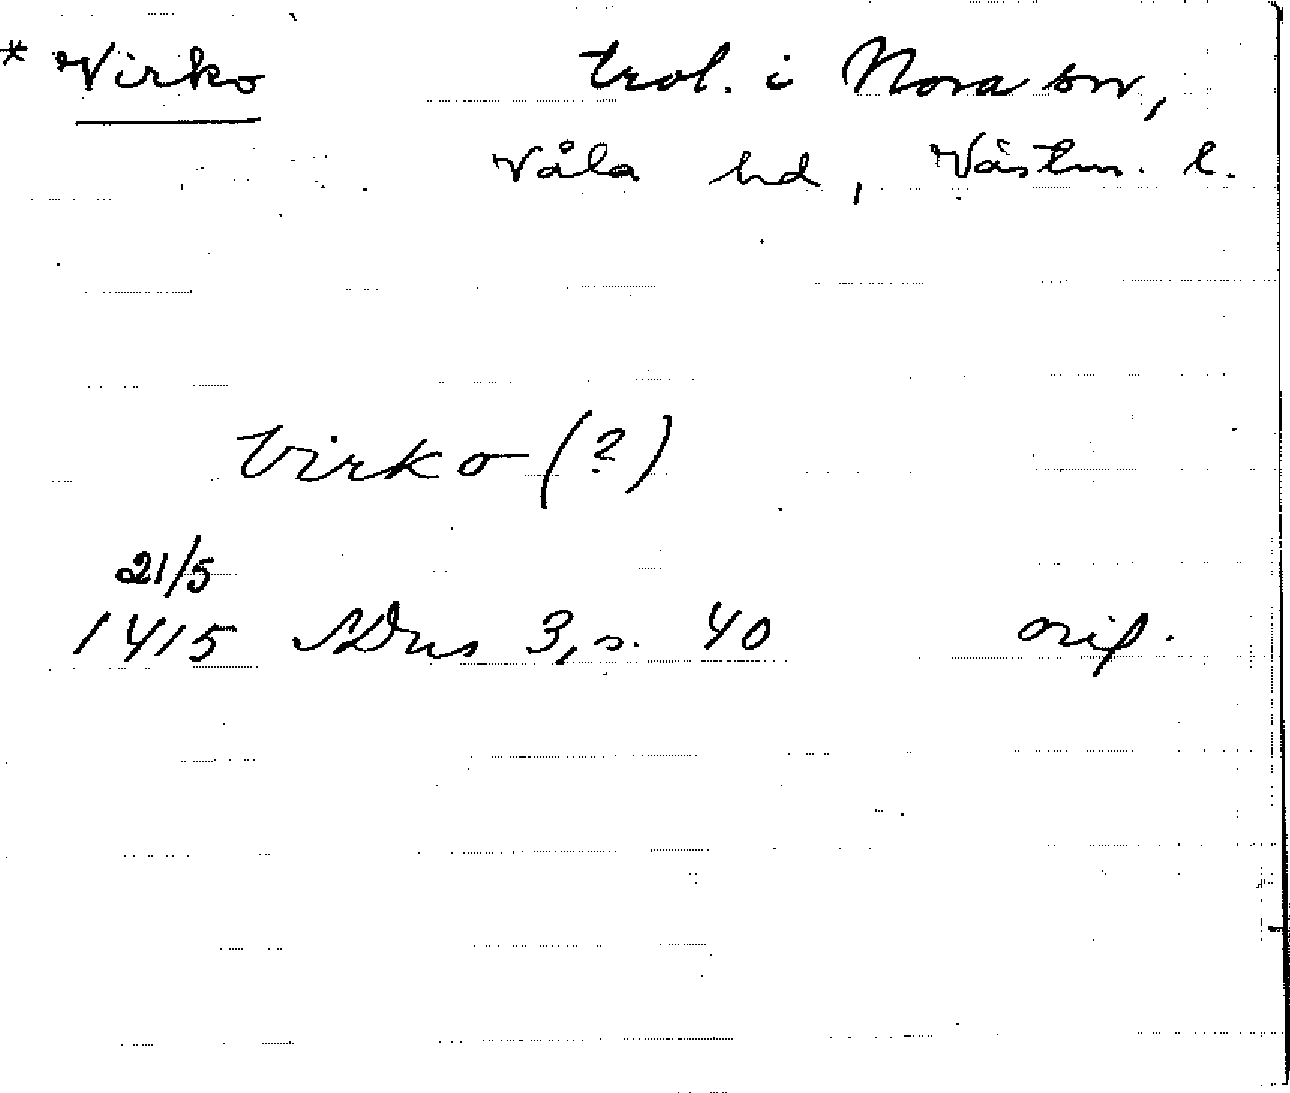 * Virko trol. i Nora sn,
Våla hd, Västm. l.
Virko (?)
21/5
1415 SDns 3, s. 40 orig.